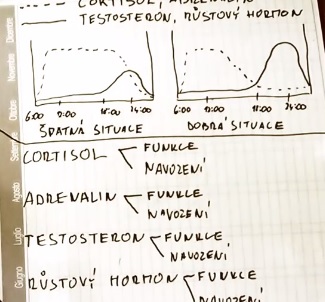 CORTISOL,
TESTOSTERON, RŮSTOVÝ HORMON
6:00 12:00 18:00 24:00
6:00 12:00 18:00 24:00
ŠPATNÁ SITUACE DOBRÁ SITUACE
CORTISOL FUNKCE
NAVOZENÍ
ADRENALIN FUNKCE
NAVOZENÍ
TESTOSTERON FUNKCE
NAVOZENÍ
RŮSTOVÝ HORMON FUNKCE
NAVOZENÍ
Dicembre
Novembre
Ottobre
Settembre
Agosto
Luglio
Giugno